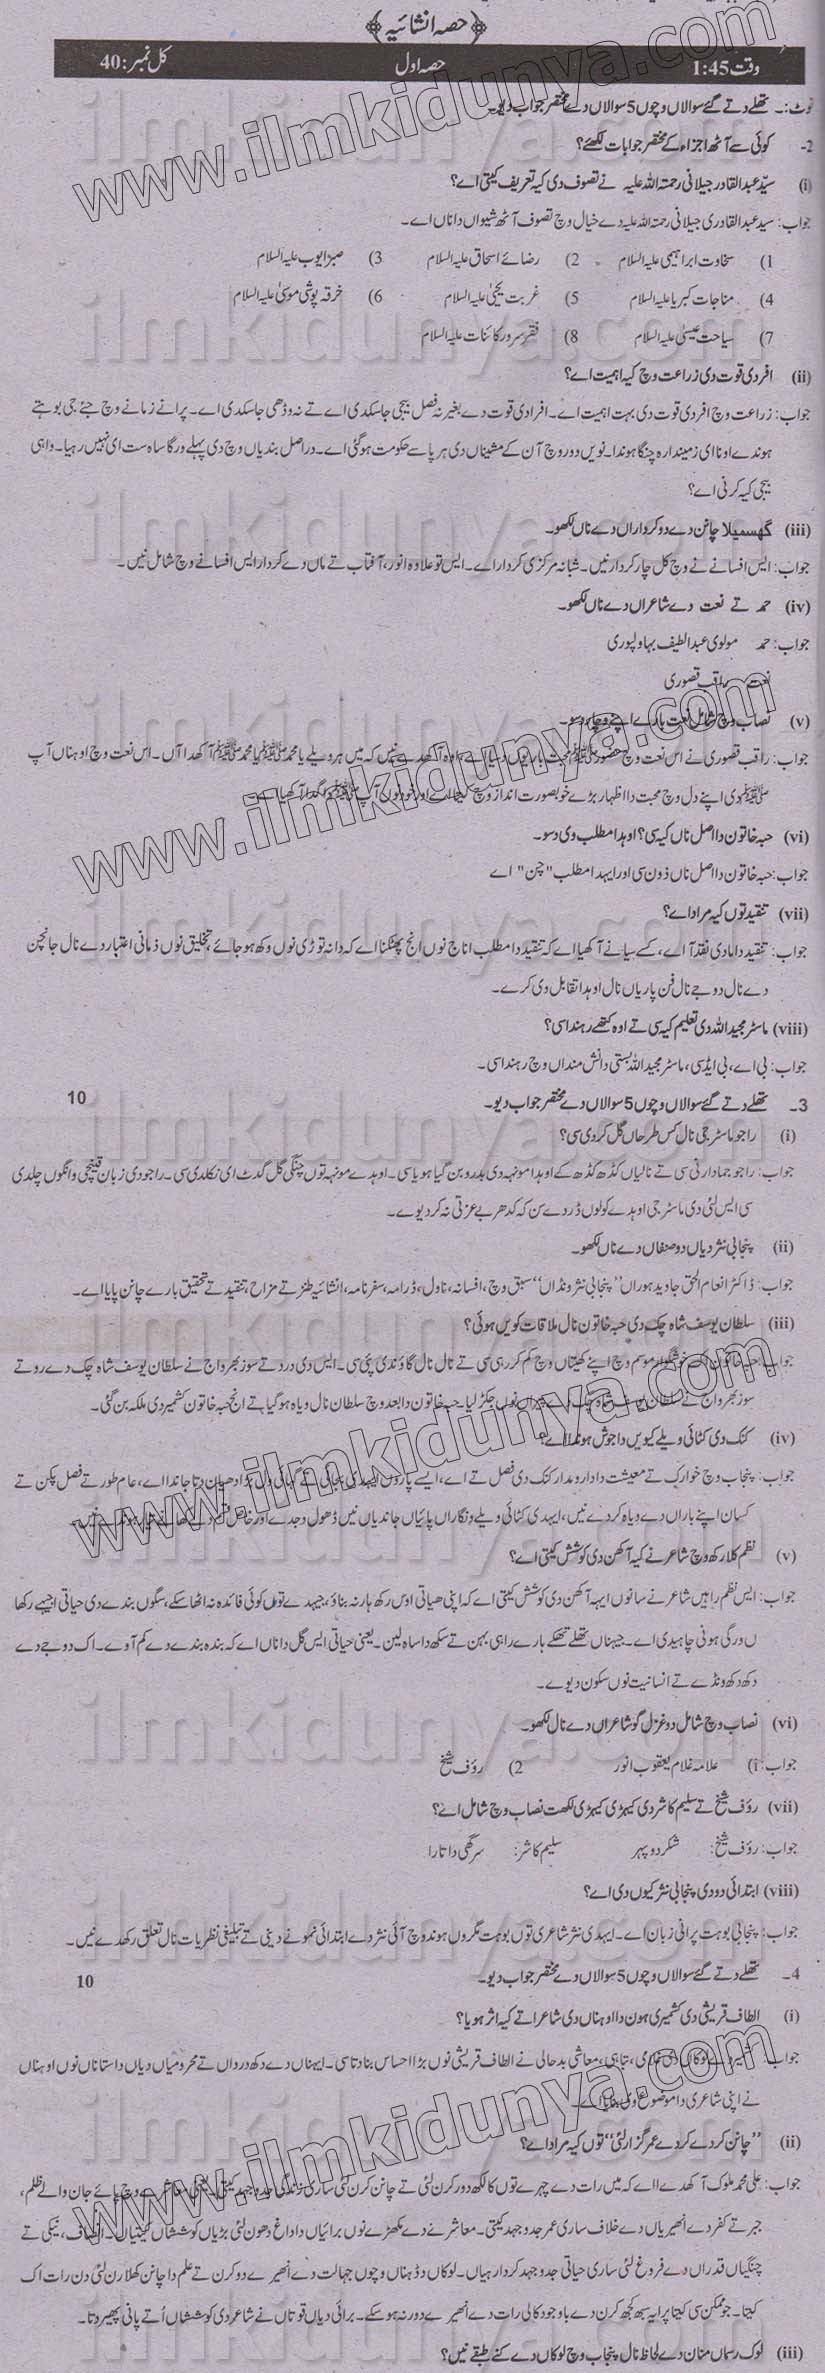 حصہ انشائیہ
وقت 1:45 حصہ اول کل نمبر: 40
نوٹ:۔ تھلے دتے گئے سوالاں وچوں 5 سوالاں دے مختصر جواب دیو۔
2- کوئی سے آٹھ اجزاء کے مختصر جوابات لکھئے؟
(i) سیّد عبدالقادر جیلانی رحمتہ اللہ علیہ نے تصوف دی کیہ تعریف کیتی اے؟
جواب: سید عبدالقادری جیلانی رحمتہ اللہ علیہ دے خیال وچ تصوف آٹھ شیواں دا ناں اے۔
1) سخاوت ابراہیمی علیہ السلام 2) رضائے اسحاق علیہ السلام 3) صبر ایوب علیہ السلام
4) مناجات کبریا علیہ السلام 5) غربت یحییٰ علیہ السلام 6) خرقہ پوشی موسیٰ علیہ السلام
7) سیاحت عیسیٰ علیہ السلام 8) فقر سرور کائنات علیہ السلام
(ii) افردی قوت دی زراعت وچ کیہ اہمیت اے؟
جواب: زراعت وچ افردی قوت دی بہت اہمیت اے۔ افرادی قوت دے بغیر نہ فصل بیجی جاسکدی اے تے نہ وڈھی جاسکدی اے۔ پرانے زمانے وچ جنے جی بوہتے
ہوندے اوناں ای زمیندارہ چنگا ہوندا۔ نویں دور وچ آن کے مشیناں دی ہر پاسے حکومت ہوگئی اے۔ دراصل بندیاں وچ دی پہلے ورگا ساہ ست ای نہیں رہیا۔ واہی
بیجی کیہ کرنی اے؟
(iii) گھسمیلا چانن دے دو کرداراں دے ناں لکھو۔
جواب: ایس افسانے نے وچ کل چار کردار نیں۔ شبانہ مرکزی کردار اے۔ ایس تو علاوہ انور، آفتاب تے ماں دے کردار ایس افسانے وچ شامل نیں۔
(iv) حمد تے نعت دے شاعراں دے ناں لکھو۔
جواب: حمد مولوی عبدالطیف بہاولپوری
نعت راقب قصوری
(v) نصاب وچ شامل نعت بارے اپنے وچار دسو۔
جواب: راقب قصوری نے اس نعت وچ حضور ﷺ محبت بارے دسیا اے، اوہ آکھدے نیں کہ میں ہر ویلے یا محمد ﷺ یا محمد ﷺ آکھدا آں۔ اس نعت وچ اوہناں آپ
ﷺ دی اپنے دل وچ محبت دا اظہار بڑے خوبصورت انداز وچ کیتا اے اور خود نوں آپ ﷺ دا گدا آکھیا اے۔
(vi) حبہ خاتون دا اصل ناں کیہ سی؟ اوہدا مطلب وی دسو۔
جواب: حبہ خاتون دا اصل ناں ذون سی اور ایہدا مطلب "چن" اے
(vii) تنقید توں کیہ مراد اے؟
جواب: تنقید دا مادی نقد آ اے، کسے سیانے آکھیا اے کہ تنقید دا مطلب اناج نوں انج پھٹکنا اے کہ دانہ توڑی نوں وکھ ہو جائے، تخلیق نوں ذمانی اعتبار دے نال جانچن
دے نال دوجے نال فن پاریاں نال اوہدا تقابل وی کرے۔
(viii) ماسٹر مجید اللہ دی تعلیم کیہ سی تے اوہ کتھے رہندا سی؟
جواب: بی اے، بی ایڈ سی، ماسٹر مجید اللہ بستی دانش منداں وچ رہندا سی۔
3۔ تھلے دتے گئے سوالاں وچوں 5 سوالاں دے مختصر جواب دیو۔ 10
(i) راجو ماسٹر جی نال کس طرحاں گل کردی سی؟
جواب: راجو جمادارنی سی تے نالیاں کڈھ کڈھ کے اوہدا مونہہ دی بدرو بن گیا ہویا سی۔ اوہدے مونہہ توں چنگی گل گھٹ ای نکلدی سی۔ راجو دی زبان قینچی وانگوں چلدی
سی ایس لئی دی ماسٹر جی اوہدے کولوں ڈردے سن کہ کدھر بے عزتی نہ کر دیوے۔
(ii) پنجابی نثر دیاں دو صفاں دے ناں لکھو۔
جواب: ڈاکٹر انعام الحق جاوید ہوراں ”پنجابی نثر ونڈاں“ سبق وچ، افسانہ، ناول، ڈرامہ، سفرنامہ، انشائیہ طنز تے مزاح، تنقید تے تحقیق بارے چانن پایا اے۔
(iii) سلطان یوسف شاہ چک دی حبہ خاتون نال ملاقات کویں ہوئی؟
جواب: حبہ خاتون اک خوشگوار موسم وچ اپنے کھیتاں وچ کم کر رہی سی تے نال نال گاؤندی پئی سی۔ ایس دی درد تے سوز بھرواج نے سلطان یوسف شاہ چک دے روتے
سوز بھرواج نے سلطان یوسف شاہ چک دے پیراں نوں جکڑ لیا۔ حبہ خاتون دا بعد وچ سلطان نال ویاہ ہوگیا تے انج حبہ خاتون کشمیر دی ملکہ بن گئی۔
(iv) کنک دی کٹائی ویلے کیویں دا جوش ہوندا اے؟
جواب: پنجاب وچ خوارک تے معیشت دا دارومدار کنک دی فصل تے اے، ایسے پاروں ایہدی بجائی تے گہائی ول بڑا دھیان دتا جاندا اے، عام طور تے فصل پکن تے
کسان اپنے باراں دے ویاہ کردے نیں، ایہدی کٹائی ویلے ونگاراں پائیاں جاندیاں نیں ڈھول وجدے اور خاص قسم دے کھانے تیار ہوندے نیں۔
(v) نظم کلا رکھ وچ شاعر نے کیہ آکھن دی کوشش کیتی اے؟
جواب: ایس نظم راہیں شاعر نے سانوں ایہہ آکھن دی کوشش کیتی اے کہ اپنی حیاتی اوس رکھ ہار نہ بناؤ، جیہدے توں کوئی فائدہ نہ اٹھا سکے، سگوں بندے دی حیاتی اجیہے رکھا
ں ورگی ہونی چاہیدی اے۔ جیہناں تھلے تھکے ہارے راہی بہن تے سکھ دا ساہ لین۔ یعنی حیاتی ایس گل دا ناں اے کہ بندہ بندے دے کم آوے۔ اک دوجے دے
دکھ دکھ ونڈے تے انسانیت نوں سکون دیوے۔
(vi) نصاب وچ شامل دو غزل گو شاعراں دے نال لکھو۔
جواب: i) علامہ غلام یعقوب انور 2) رؤف شیخ
(vii) رؤف شیخ تے سلیم کاشر دی کیہڑی کیہڑی لکھت نصاب وچ شامل اے؟
جواب: رؤف شیخ: شکر دوپہر سلیم کاشر: سرگھی دا تارا
(viii) ابتدائی دو دی پنجابی نثر کیوں دی اے؟
جواب: پنجابی بوہت پرانی زبان اے۔ ایہدی نثر شاعری توں بوہت مگروں ہوند وچ آئی نثر دے ابتدائی نمونے دینی تے تبلیغی نظریات نال تعلق رکھدے نیں۔
4۔ تھلے دتے گئے سوالاں وچوں 5 سوالاں دے مختصر جواب دیو۔ 10
(i) الطاف قریشی دی کشمیری ہون دا اوہناں دی شاعر اتے کیہ اثر ہویا؟
جواب: کشمیر دے لوکاں دی غلامی، تباہی، معاشی بدحالی نے الطاف قریشی نوں بڑا احساس بنا دتا سی۔ ایہناں دے دکھ درداں تے محرومیاں دیاں داستاناں نوں اوہناں
نے اپنی شاعری دا موضوع وی بنایا اے۔
(ii) ”چانن کردے کردے عمر گزار لئی“ توں کیہ مراد اے؟
جواب: علی محمد ملوک آکھدے ااے کہ میں رات دے چہرے توں کالکھ دور کرن لئی تے چانن کرن لئی ساری زندگی جدوجہد کیتی۔ یعنی معاشرے وچ پائے جان والے ظلم،
جبر تے کفر دے انھیریاں دے خلاف ساری عمر جدوجہد کیتی۔ معاشرے دے مکھڑے نوں برائیاں دا داغ دھون لئی بڑیاں کوششاں کیتیاں۔ انصاف، نیکی تے
چنگیاں قدراں دے فروغ لئی ساری حیاتی جدوجہد کردا رہیاں۔ لوکاں دے ذہناں وچوں جہالت دے انھیرے دور کرن تے علم دا چانن کھلارن لئی دن رات اک
کیتا۔ جو ممکن سی کیتا پر ایہ سبھ کچھ کرن دے باوجود کالی رات دے انھیرے دور نہ ہو سکے۔ برائی دیاں قوتاں نے شاعر دی کوششاں اُتے پانی پھیر دتا۔
(iii) لوک رسماں منان دے لحاظ نال پنجاب وچ لوکاں دے کنے طبقے نیں؟
www.ilmkidunya.com